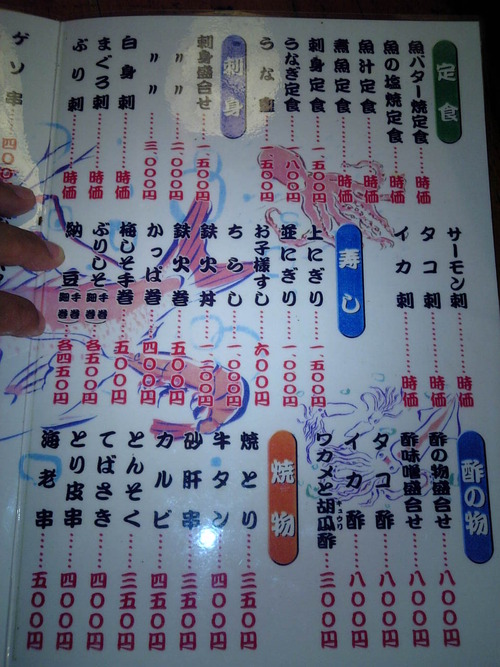 定食
魚バター焼定食……時価
魚の塩焼定食……時価
魚汁定食……時価
煮魚定食……時価
刺身定食……一五〇〇円
うなぎ定食……一八〇〇円
うな
刺身
刺身盛合せ……一五〇〇円
〃 〃……二〇〇〇円
〃 〃……三〇〇〇円
白身刺……時価
まぐろ刺……時価
ぶり刺……時価
ゲソ串……四〇〇
サーモン刺……時価
タコ刺……時価
イカ刺……時価
寿し
上にぎり……一五〇〇円
並にぎり……一〇〇〇円
お子様すし……六〇〇円
ちらし……一〇〇〇円
鉄火丼……一二〇〇円
鉄火巻……五〇〇円
かっぱ巻……四〇〇円
梅しそ手巻……五〇〇円
ぶりしそ 手巻……各五〇〇円
納豆 手巻……各四五〇円
酢の物
酢の物盛合せ……八〇〇円
酢味噌盛合せ……八〇〇円
タコ酢……八〇〇円
イカ酢……八〇〇円
ワカメと胡瓜酢……三〇〇円
キュウリ
焼物
焼とり……三五〇円
牛タン……四〇〇円
砂肝串……三五〇円
カルビ……四五〇円
とんそく……三五〇円
てばさき……四〇〇円
とり皮串……四〇〇円
海老串……五〇〇円